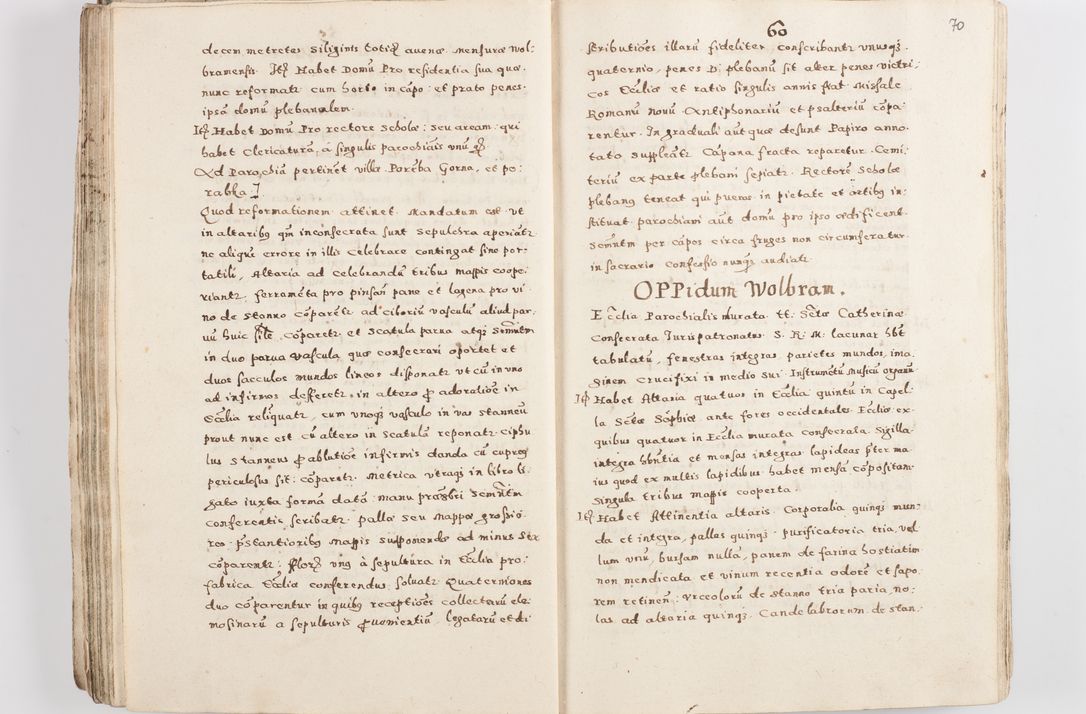 decem metretes Siligints totiq avenæ mensuræ Wol:
bramensis. Itq Habet Domū Pro residentia sua quæ.
nunc reformatr cum horto in cāpo: et prato penes.
ipsā domū plebanalem.
Itq Habet Domū Pro rectore Scholæ: seu aream qui
habet Clericaturā, a singulis parochiāis unū
Ad Parochiā pertinet villæ Porēba Gorna, et po:
rabka
Quod reformationem attinet. Mandatum est vt
in altaribq qm inconsecrata sunt sepulchra aperiātr
ne aliquā errore in illis celebrare contingat sine por:
tatili, Altaria ad celebrandū tribus mappis coope:
riantr, ferramēta pro pinsan pane et lagena pro vi:
no de stanno cōparētr ad ciboriū vasculū aliud par:
uū huic file cōparetr et scatula parua atqz
in duo parua vascula quæ consecrari oportet et
duos sacculos mundos lineos disponatr vt cū in vno
ad infirmos defferetr, in altero ꝓ adoratiōe in
Ecclia relīquatr, cum vnoqz vasculo in vas stanneū
prout nunc est cū altero in scatula reponatr. Ciphu
lus stanneus ꝓ ablutiōe infirmis danda cū cupreq
periculosus sit: cōparetr. Metrica vtraqz in libro li:
gato iuxta formā datā manu præsbri
conferentis scribatr. palla seu mappæ grossio:
res pstantioribq mappis supponendæ ad minus sex
cōparentr: vnq à sepultura in Ecclia pro
fabrica Ecclæ conferendus soluatr. Quaterniones
duo cōparentur in quibq receptiōes collectarū ele:
mosinarū a sepulturis ꝓuenientiū, legatarū et di
60
70
stributiōes illarū fideliter conscribantr vnusqz.
quaternio, penes D: plebanū sit alter penes victri:
cos Eccliæ et ratio singulis annis fiat. Missale
Romanū nouū Antiphonariū et psalteriū cōpa:
rentur. In graduali aut quæ desunt Papiro anno:
tato suppleātr. Cāpana fracta reparetur. Cemi:
teriū ex parte plebani sepiatr. Rectorē Scholæ
plebanq teneat qui pueros in pietate et artibq in:
stituat parochiani aut domū pro ipso ædificent.
per cāpos circa fruges non circumferatur.
in sacrario confessio nunqz audiatr
OPPidum Wolbram.
Ecclia Parochialis murata tt: Sctæ Catherinæ
Consecrata Jurispatronatus S: R: M: lacunar hbt
tabulatū, fenestras integras, parietes mundos, ima:
ginem Crucifixi in medio sui. Instrumētū Musicū organū
Itq Habet Altaria quatuor in Ecclia quintū in Capel:
la Sctæ Sophiæ, ante fores occidentales Eccliæ ex:
quibus quatuor in Ecclia murata consecrata. Sigilla:
integra hbntia et mensas integras lapideas pter ma:
ius quod ex multis lapidibus habet mensā cōpositam:
singula tribus mappis cooperta.
Itq Habet Attinentia altaris. Corporalia quinqz mun:
da et integra, pallas quinqz purificatoria tria, vel
lum vnū, bursam nullā, panem de farina hostiatim
non mendicata et vinum recentia odorē et sapo:
rem retinen: vrceolorū de stanno tria paria, no:
las ad altaria quinqz, Candelabrorum de stan: